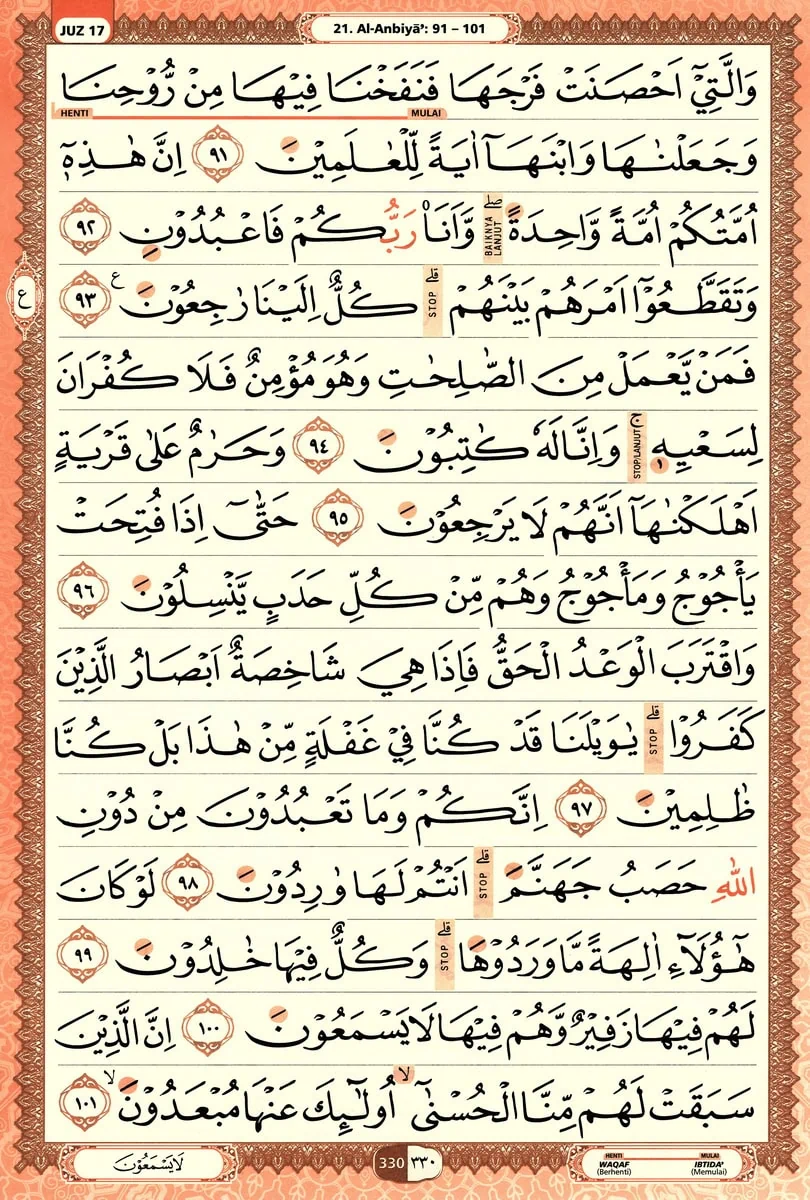 JUZ 17
21. Al-Anbiyā': 91 – 101
وَالَّتِيْٓ اَحْصَنَتْ فَرْجَهَا فَنَفَخْنَا فِيْهَا مِنْ رُّوْحِنَا
HENTI MULAI
وَجَعَلْنٰهَا وَابْنَهَآ اٰيَةً لِّلْعٰلَمِيْنَ ٩١ اِنَّ هٰذِهٖٓ
اُمَّتُكُمْ اُمَّةً وَّاحِدَةً ۖ BAIKNYA LANJUT وَّاَنَا۠ رَبُّكُمْ فَاعْبُدُوْنِ ٩٢
وَتَقَطَّعُوْٓا اَمْرَهُمْ بَيْنَهُمْ ۗ STOP كُلٌّ اِلَيْنَا رٰجِعُوْنَ ع ٩٣
ع
فَمَنْ يَّعْمَلْ مِنَ الصّٰلِحٰتِ وَهُوَ مُؤْمِنٌ فَلَا كُفْرَانَ
لِسَعْيِهٖ ۚ ١ STOP/LANJUT وَاِنَّا لَهٗ كٰتِبُوْنَ ٩٤ وَحَرَامٌ عَلٰى قَرْيَةٍ
اَهْلَكْنٰهَآ اَنَّهُمْ لَا يَرْجِعُوْنَ ٩٥ حَتّٰىٓ اِذَا فُتِحَتْ
يَأْجُوْجُ وَمَأْجُوْجُ وَهُمْ مِّنْ كُلِّ حَدَبٍ يَّنْسِلُوْنَ ٩٦
وَاقْتَرَبَ الْوَعْدُ الْحَقُّ فَاِذَا هِيَ شَاخِصَةٌ اَبْصَارُ الَّذِيْنَ
كَفَرُوْا ۗ STOP يٰوَيْلَنَا قَدْ كُنَّا فِيْ غَفْلَةٍ مِّنْ هٰذَا بَلْ كُنَّا
ظٰلِمِيْنَ ٩٧ اِنَّكُمْ وَمَا تَعْبُدُوْنَ مِنْ دُوْنِ
اللّٰهِ حَصَبُ جَهَنَّمَ ۗ STOP اَنْتُمْ لَهَا وٰرِدُوْنَ ٩٨ لَوْ كَانَ
هٰٓؤُلَاۤءِ اٰلِهَةً مَّا وَرَدُوْهَا ۗ STOP وَكُلٌّ فِيْهَا خٰلِدُوْنَ ٩٩
لَهُمْ فِيْهَا زَفِيْرٌ وَّهُمْ فِيْهَا لَا يَسْمَعُوْنَ ١٠٠ اِنَّ الَّذِيْنَ
سَبَقَتْ لَهُمْ مِّنَّا الْحُسْنٰىٓ ۙ اُولٰۤىِٕكَ عَنْهَا مُبْعَدُوْنَ ۙ ١٠١
لَا يَسْمَعُوْنَ
330 ٣٣٠
HENTI MULAI
WAQAF IBTIDA'
(Berhenti) (Memulai)